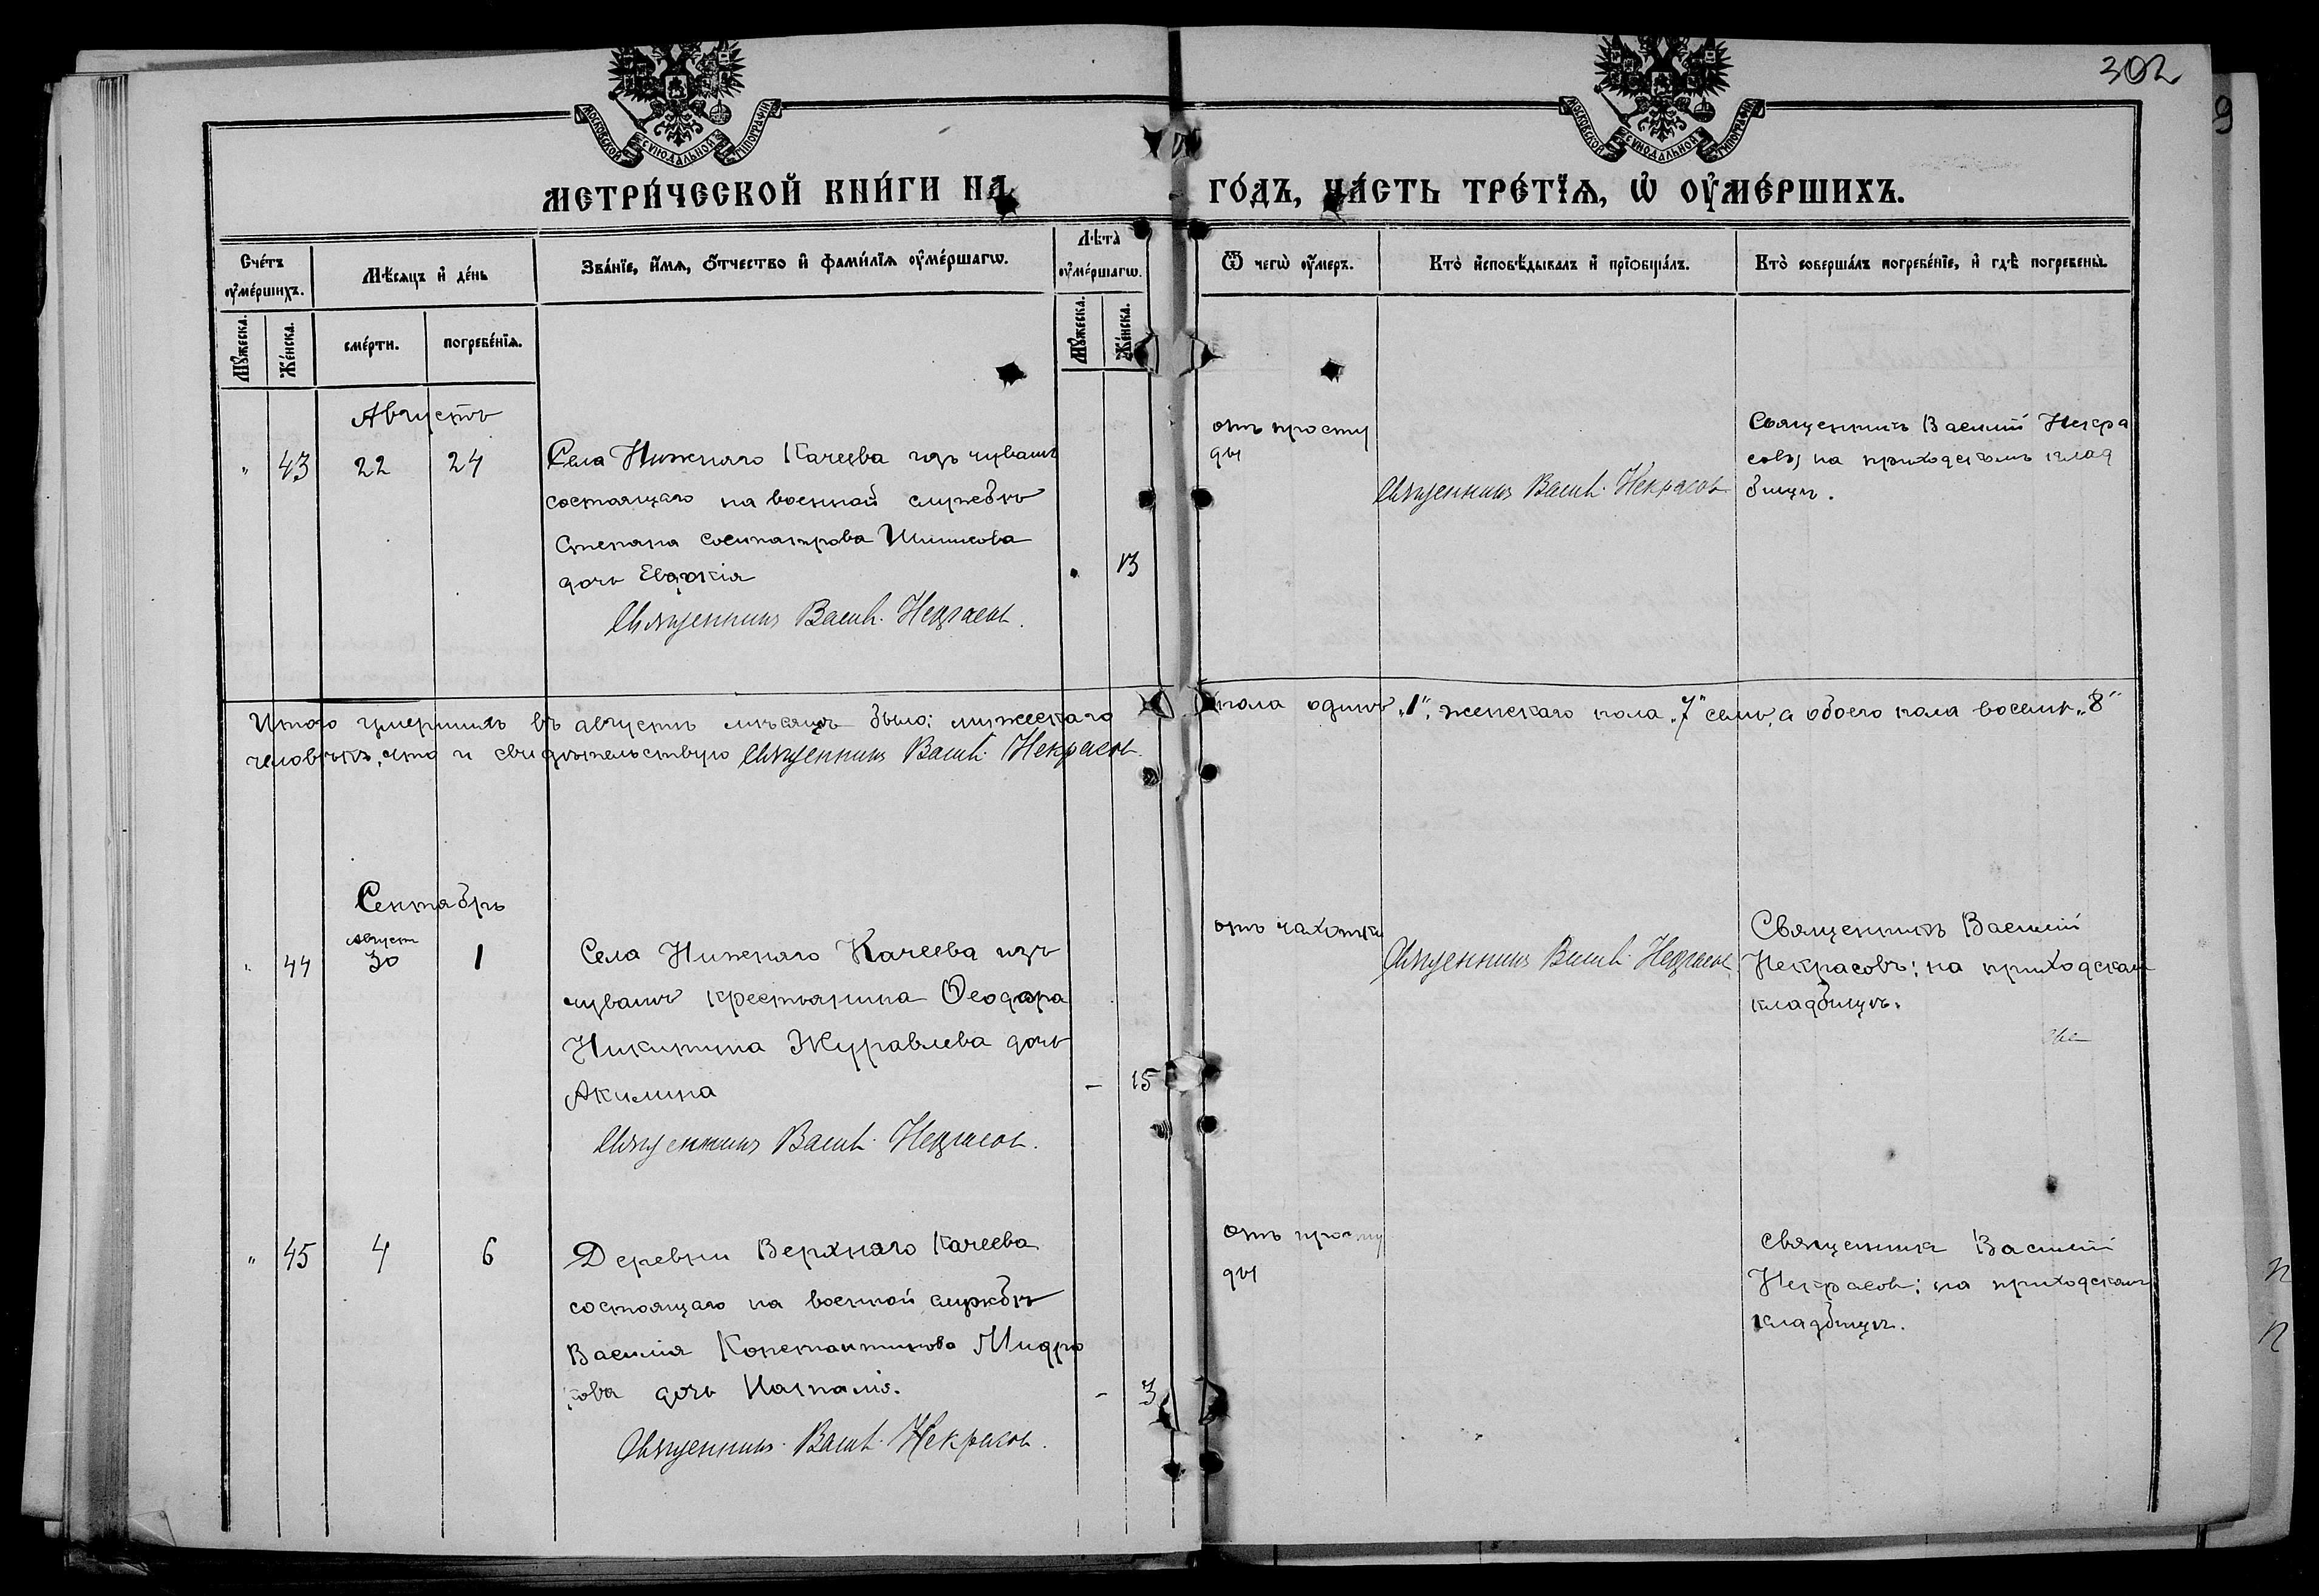 302
9
МОСКОВСКОЙ СѴНОДАЛЬНОЙ ТИПОГРАФІИ
МОСКОВСКОЙ СѴНОДАЛЬНОЙ ТИПОГРАФІИ
МЕТРИ́ЧЕСКОЙ КНИ́ГИ НА ГО́ДЪ, ЧА́СТЬ ТРЕ́ТЇѦ, Ѡ҆ ОУ҆МЕ́РШИХЪ.
Сче́тъ оу҆ме́ршихъ.
Мѣ́сѧцъ и҆ де́нь
Зва́нїе, и҆́мѧ, ѻ҆́тчество и҆ фами́лїѧ оу҆ме́ршагѡ.
Лѣ́та оу҆ме́ршагѡ.
Ѿ чегѡ̀ оу҆́меръ.
Кто̀ и҆сповѣ́дывалъ и҆ прїѻбща́лъ.
Кто̀ соверша́лъ погребе́нїе, и҆ гдѣ̀ погребены̀.
Мꙋ́жеска.
Же́нска.
сме́рти.
погребе́нїѧ.
Мꙋ́жеска.
Же́нска.
Августъ
" 43 22 24
Села Нижняго Качеева изъ чувашъ
состоящаго на военной службѣ
Степана Сосипатрова
дочь Евдокія
13
Священникъ Васил. Некрасов.
отъ просту
ды
Священникъ Васил. Некрасов
Священникъ Василій Некра
совъ; на приходскомъ клад
бищѣ.
Итого умершихъ въ августѣ мѣсяцѣ было: мужескаго пола одинъ „1", женскаго пола „7" семь, а обоего пола восемь „8"
человѣкъ, что и свидѣтельствую Священникъ Васил. Некрасов.
Сентябрь
" 44
Август
30
1
Села Нижняго Качеева изъ
чувашъ крестьянина Ѳеодора
Никитина Журавлева дочь
Акилина
- 15
Священникъ Васил. Некрасов.
отъ чахотки
Священникъ Васил. Некрасов.
Священникъ Василій
Некрасовъ; на приходском
кладбищѣ.
" 45 4 6
Деревни Верхняго Качеева
состоящаго на военной службѣ
Василія Константинова
дочь Наталія.
- 3
Священникъ Васил. Некрасов.
отъ просту
ды
Священникъ Василій
Некрасов; на приходском
кладбищѣ.